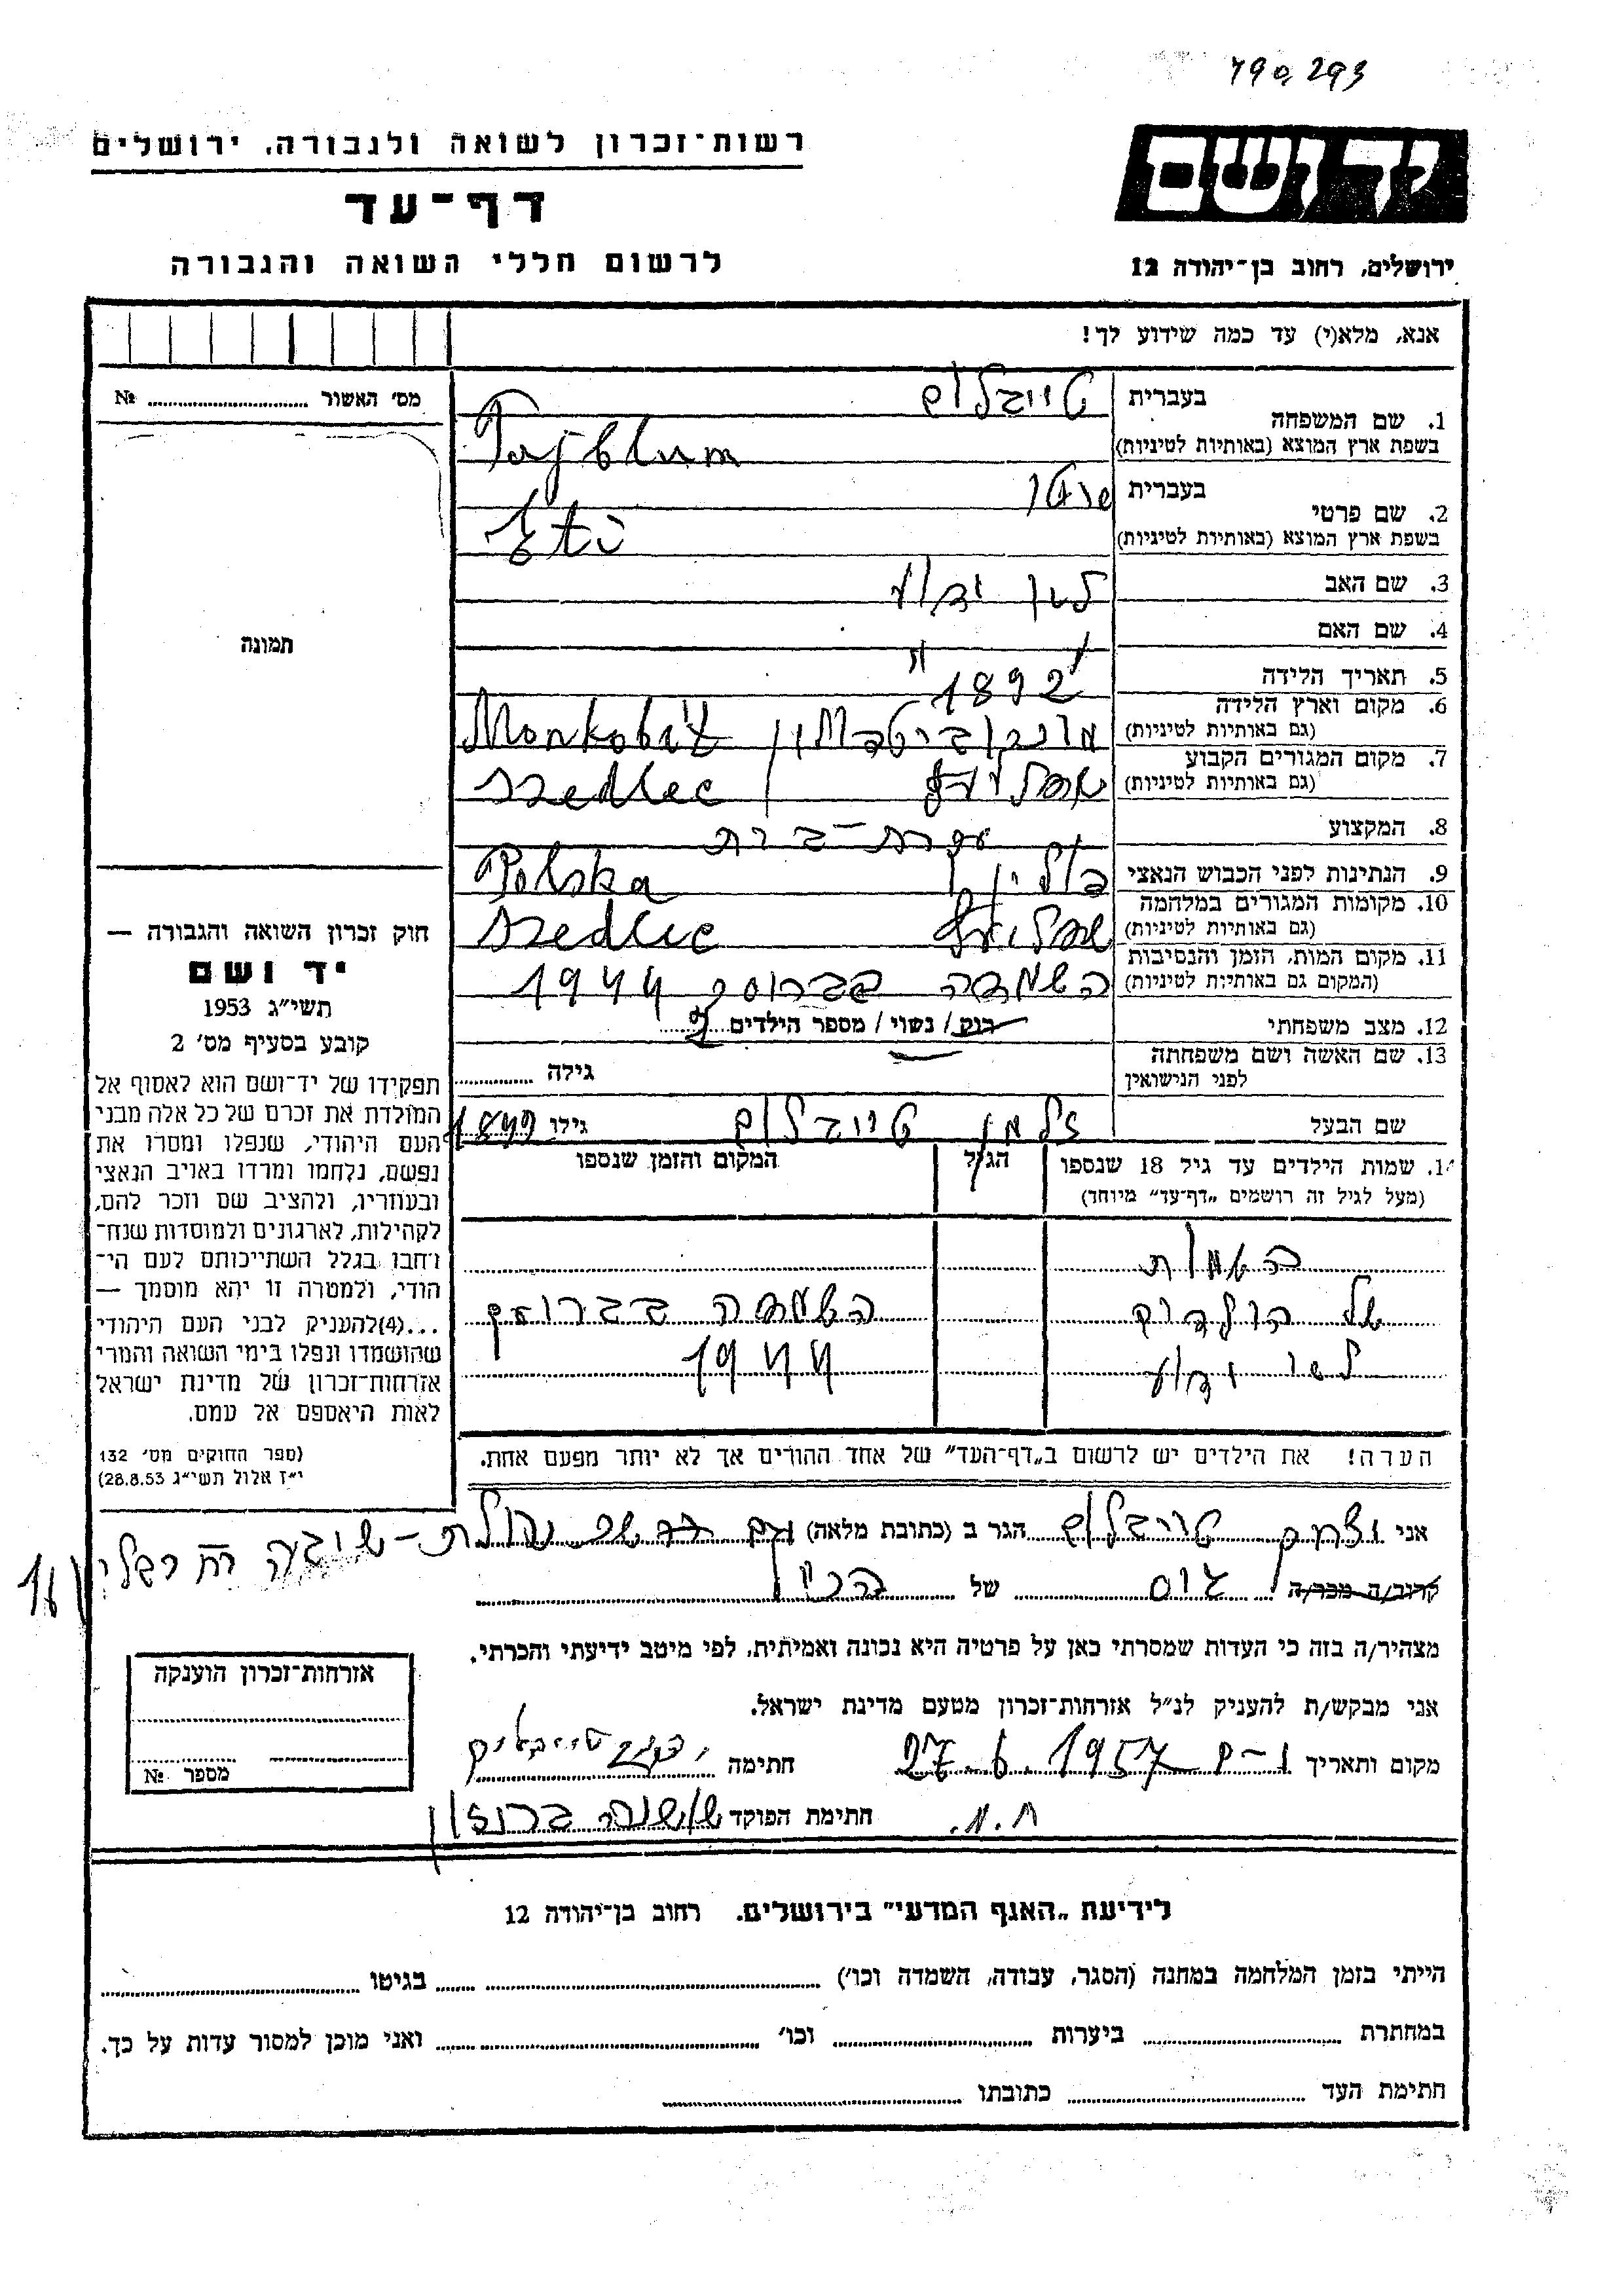 790,293
רשות-זכרון לשואה ולגבורה, ירושלים
יד ושם
דף-עד
לרשום חללי השואה והגבורה
ירושלים, רחוב בן-יהודה 12
אנא, מלא(י) עד כמה שידוע לך!
מס׳ האשור № 
1. שם המשפחה בעברית טייבלום
בשפת ארץ המוצא (באותיות לטיניות) Tajblum
2. שם פרטי בעברית
בשפת ארץ המוצא (באותיות לטיניות)
3. שם האב לא ידוע
4. שם האם " "
5. תאריך הלידה 1892
6. מקום וארץ הלידה
(גם באותיות לטיניות)
7. מקום המגורים הקבוע
(גם באותיות לטיניות) Szedlec
8. המקצוע עקרת-בית
9. הנתינות לפני הכבוש הנאצי פולין Polska
10. מקומות המגורים במלחמה
(גם באותיות לטיניות) Szedlec
11. מקום המות, הזמן והנסיבות
(המקום גם באותיות לטיניות) השמדה 1944
12. מצב משפחתי רווק / נשוי / מספר הילדים
13. שם האשה ושם משפחתה
לפני הנישואין גילה
שם הבעל זלמן טייבלום גילו
14. שמות הילדים עד גיל 18 שנספו הגיל המקום והזמן שנספו
(מעל לגיל זה רושמים „דף-עד״ מיוחד)
השמות
של הילדים השמדה
לא ידוע 1944
הערה! את הילדים יש לרשום ב„דף-העד״ של אחד ההורים אך לא יותר מפעם אחת.
תמונה
חוק זכרון השואה והגבורה —
יד ושם
תשי״ג 1953
קובע בסעיף מס׳ 2
תפקידו של יד-ושם הוא לאסוף אל
המולדת את זכרם של כל אלה מבני
העם היהודי, שנפלו ומסרו את
נפשם, נלחמו ומרדו באויב הנאצי
ובעוזריו, ולהציב שם וזכר להם,
לקהילות, לארגונים ולמוסדות שנח-
רחבו בגלל השתייכותם לעם הי-
הודי, ולמטרה זו יהא מוסמך —
...(4)להעניק לבני העם היהודי
שהושמדו ונפלו בימי השואה והמרי
אזרחות-זכרון של מדינת ישראל
לאות היאספם אל עמם.
(ספר החוקים מס׳ 132
י״ז אלול תשי״ג 28.8.53)
אני יצחק טייבלום הגר ב (כתובת מלאה)
קרוב/ה מכר/ה של
מצהיר/ה בזה כי העדות שמסרתי כאן על פרטיה היא נכונה ואמיתית, לפי מיטב ידיעתי והכרתי.
אני מבקש/ת להעניק לנ״ל אזרחות-זכרון מטעם מדינת ישראל.
מקום ותאריך 27.6.1957 חתימה
חתימת הפוקד שושנה
אזרחות-זכרון הוענקה
מספר №
לידיעת „האגף המדעי״ בירושלים. רחוב בן-יהודה 12
הייתי בזמן המלחמה במחנה (הסגר, עבודה, השמדה וכו׳) בגיטו
במחתרת ביערות וכו׳ ואני מוכן למסור עדות על כך.
חתימת העד כתובתו